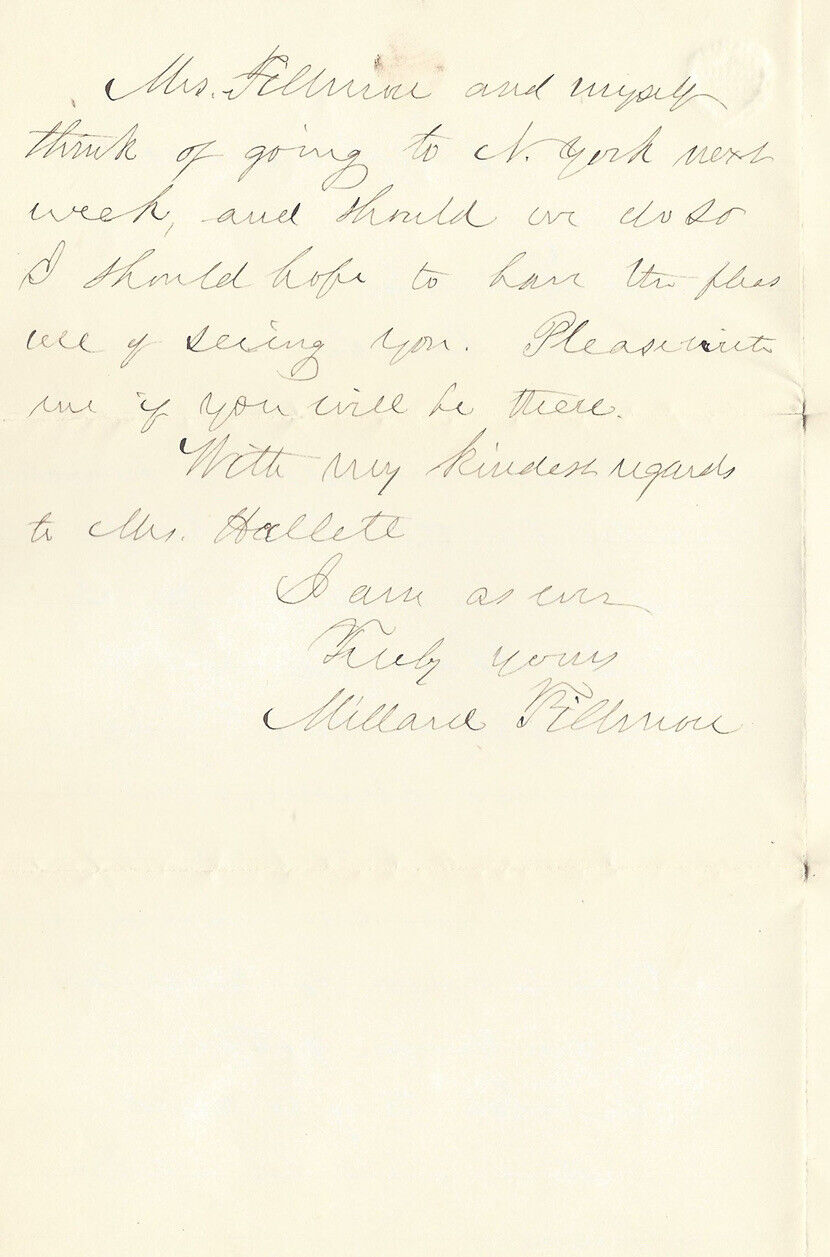 Mrs. Fillmore and myself
think of going to N. York next
week, and should we do so
I should hope to have the pleas
ure of seeing you. Please write
me if you will be there.
With my kindest regards
to Mrs. Hallett
I am as ever
Truly yours
Millard Fillmore